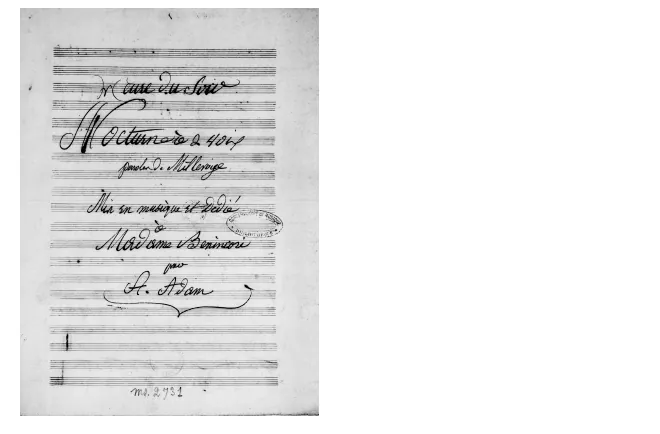 heure du Soir
Nocturne à 2 voix
paroles de Millevoye
Mis en musique et Dedié
à
Madame Benincori
par
A. Adam
ms. 2731